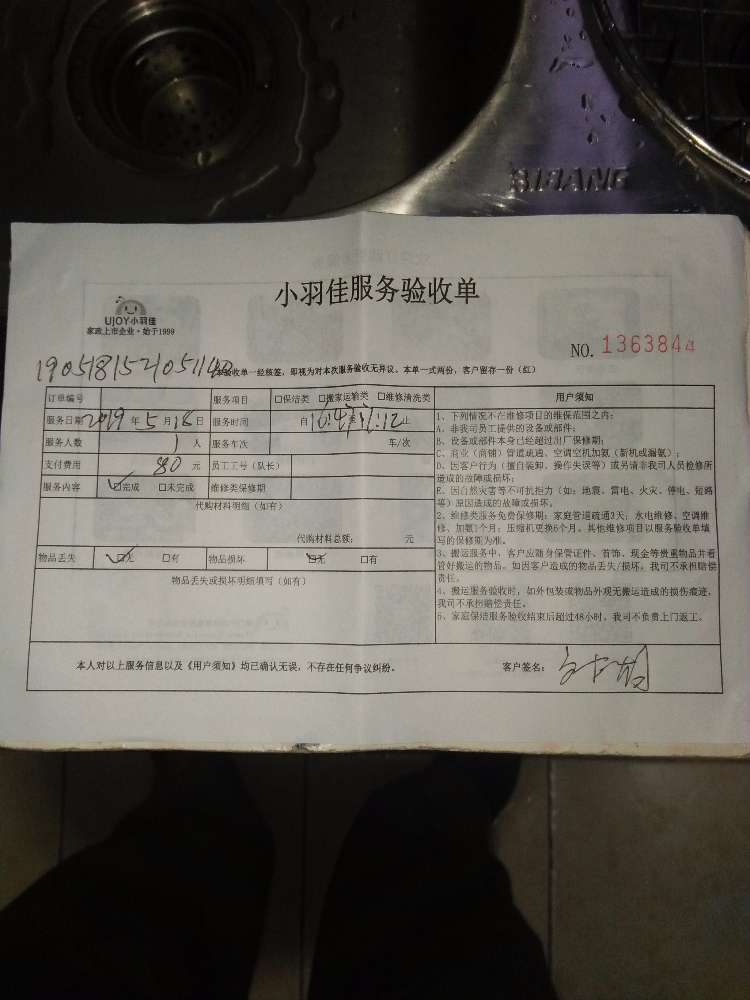 BIBANG
小羽佳服务验收单
UJOY小羽佳
家政上市企业·始于1999
NO. 1363844
本验收单一经核签，即视为对本次服务验收无异议。本单一式两份，客户留存一份（红）
订单编号 服务项目 □保洁类 □搬家运输类 □维修清洗类
服务日期 2019 年 5 月 18 日 服务时间 自
服务人数 1 人 服务车次 车/次
支付费用 80 元 员工工号（队长）
服务内容 □完成 □未完成 维修类保修期
代购材料明细（如有）
代购材料总额： 元
物品丢失 □无 □有 物品损坏 □无 □有
物品丢失或损坏明细填写（如有）
用户须知
1、下列情况不在维修项目的维保范围之内：
A、非我司员工提供的设备或部件；
B、设备或部件本身已经超过出厂保修期；
C、商业（商铺）管道疏通、空调空机加氨（新机或漏氨）；
D、因客户行为（擅自装卸、操作失误等）或另请非我司人员检修所
造成的故障或损坏；
E、因自然灾害等不可抗拒力（如：地震、雷电、火灾、停电、短路
等）原因造成的故障或损坏。
2、维修类服务免费保修期：家庭管道疏通3天；水电维修、空调维
修、加氨1个月；压缩机更换6个月。其他维修项目以服务验收单填
写的保修期为准。
3、搬运服务中，客户应随身保管证件、首饰、现金等贵重物品并看
管好搬运的物品。如因客户造成的物品丢失/损坏，我司不承担赔偿
责任。
4、搬运服务验收时，如外包装或物品外观无搬运造成的损伤痕迹，
我司不承担赔偿责任。
5、家庭保洁服务验收结束后超过48小时，我司不负责上门返工。
本人对以上服务信息以及《用户须知》均已确认无误，不存在任何争议纠纷。 客户签名：